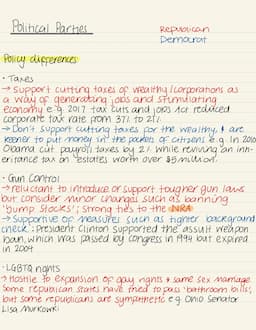 Political Parties
Republican
Democrat
Policy differences
• Taxes
→ Support cutting taxes of wealthy/corporations as
a way of generating jobs and stimulating
economy e.g. 2017 tax cuts and jobs act reduced
corporate tax rate from 37% to 21%.
→ Don't support cutting taxes for the wealthy, & are
keener to put money in the pockets of citizens e.g. in 2010
Obama cut payroll taxes by 2% while reviving an inh-
eritance tax on estates worth over $5 million.
• Gun Control
→ reluctant to introduce or support tougher gun laws
but consider minor changes such as banning
'bump stocks'; strong ties to the NRA
→ Supportive of measures such as tighter background
check; President Clinton supported the assault weapon
ban, which was passed by congress in 1994 but expired
in 2004
• LGBTQ rights
→ Hostile to expansion of gay rights & same sex marriage.
Some republican states have tried to pass 'bathroom bills',
but some republicans are sympathetic e.g. Ohio Senator
Lisa Murkowki